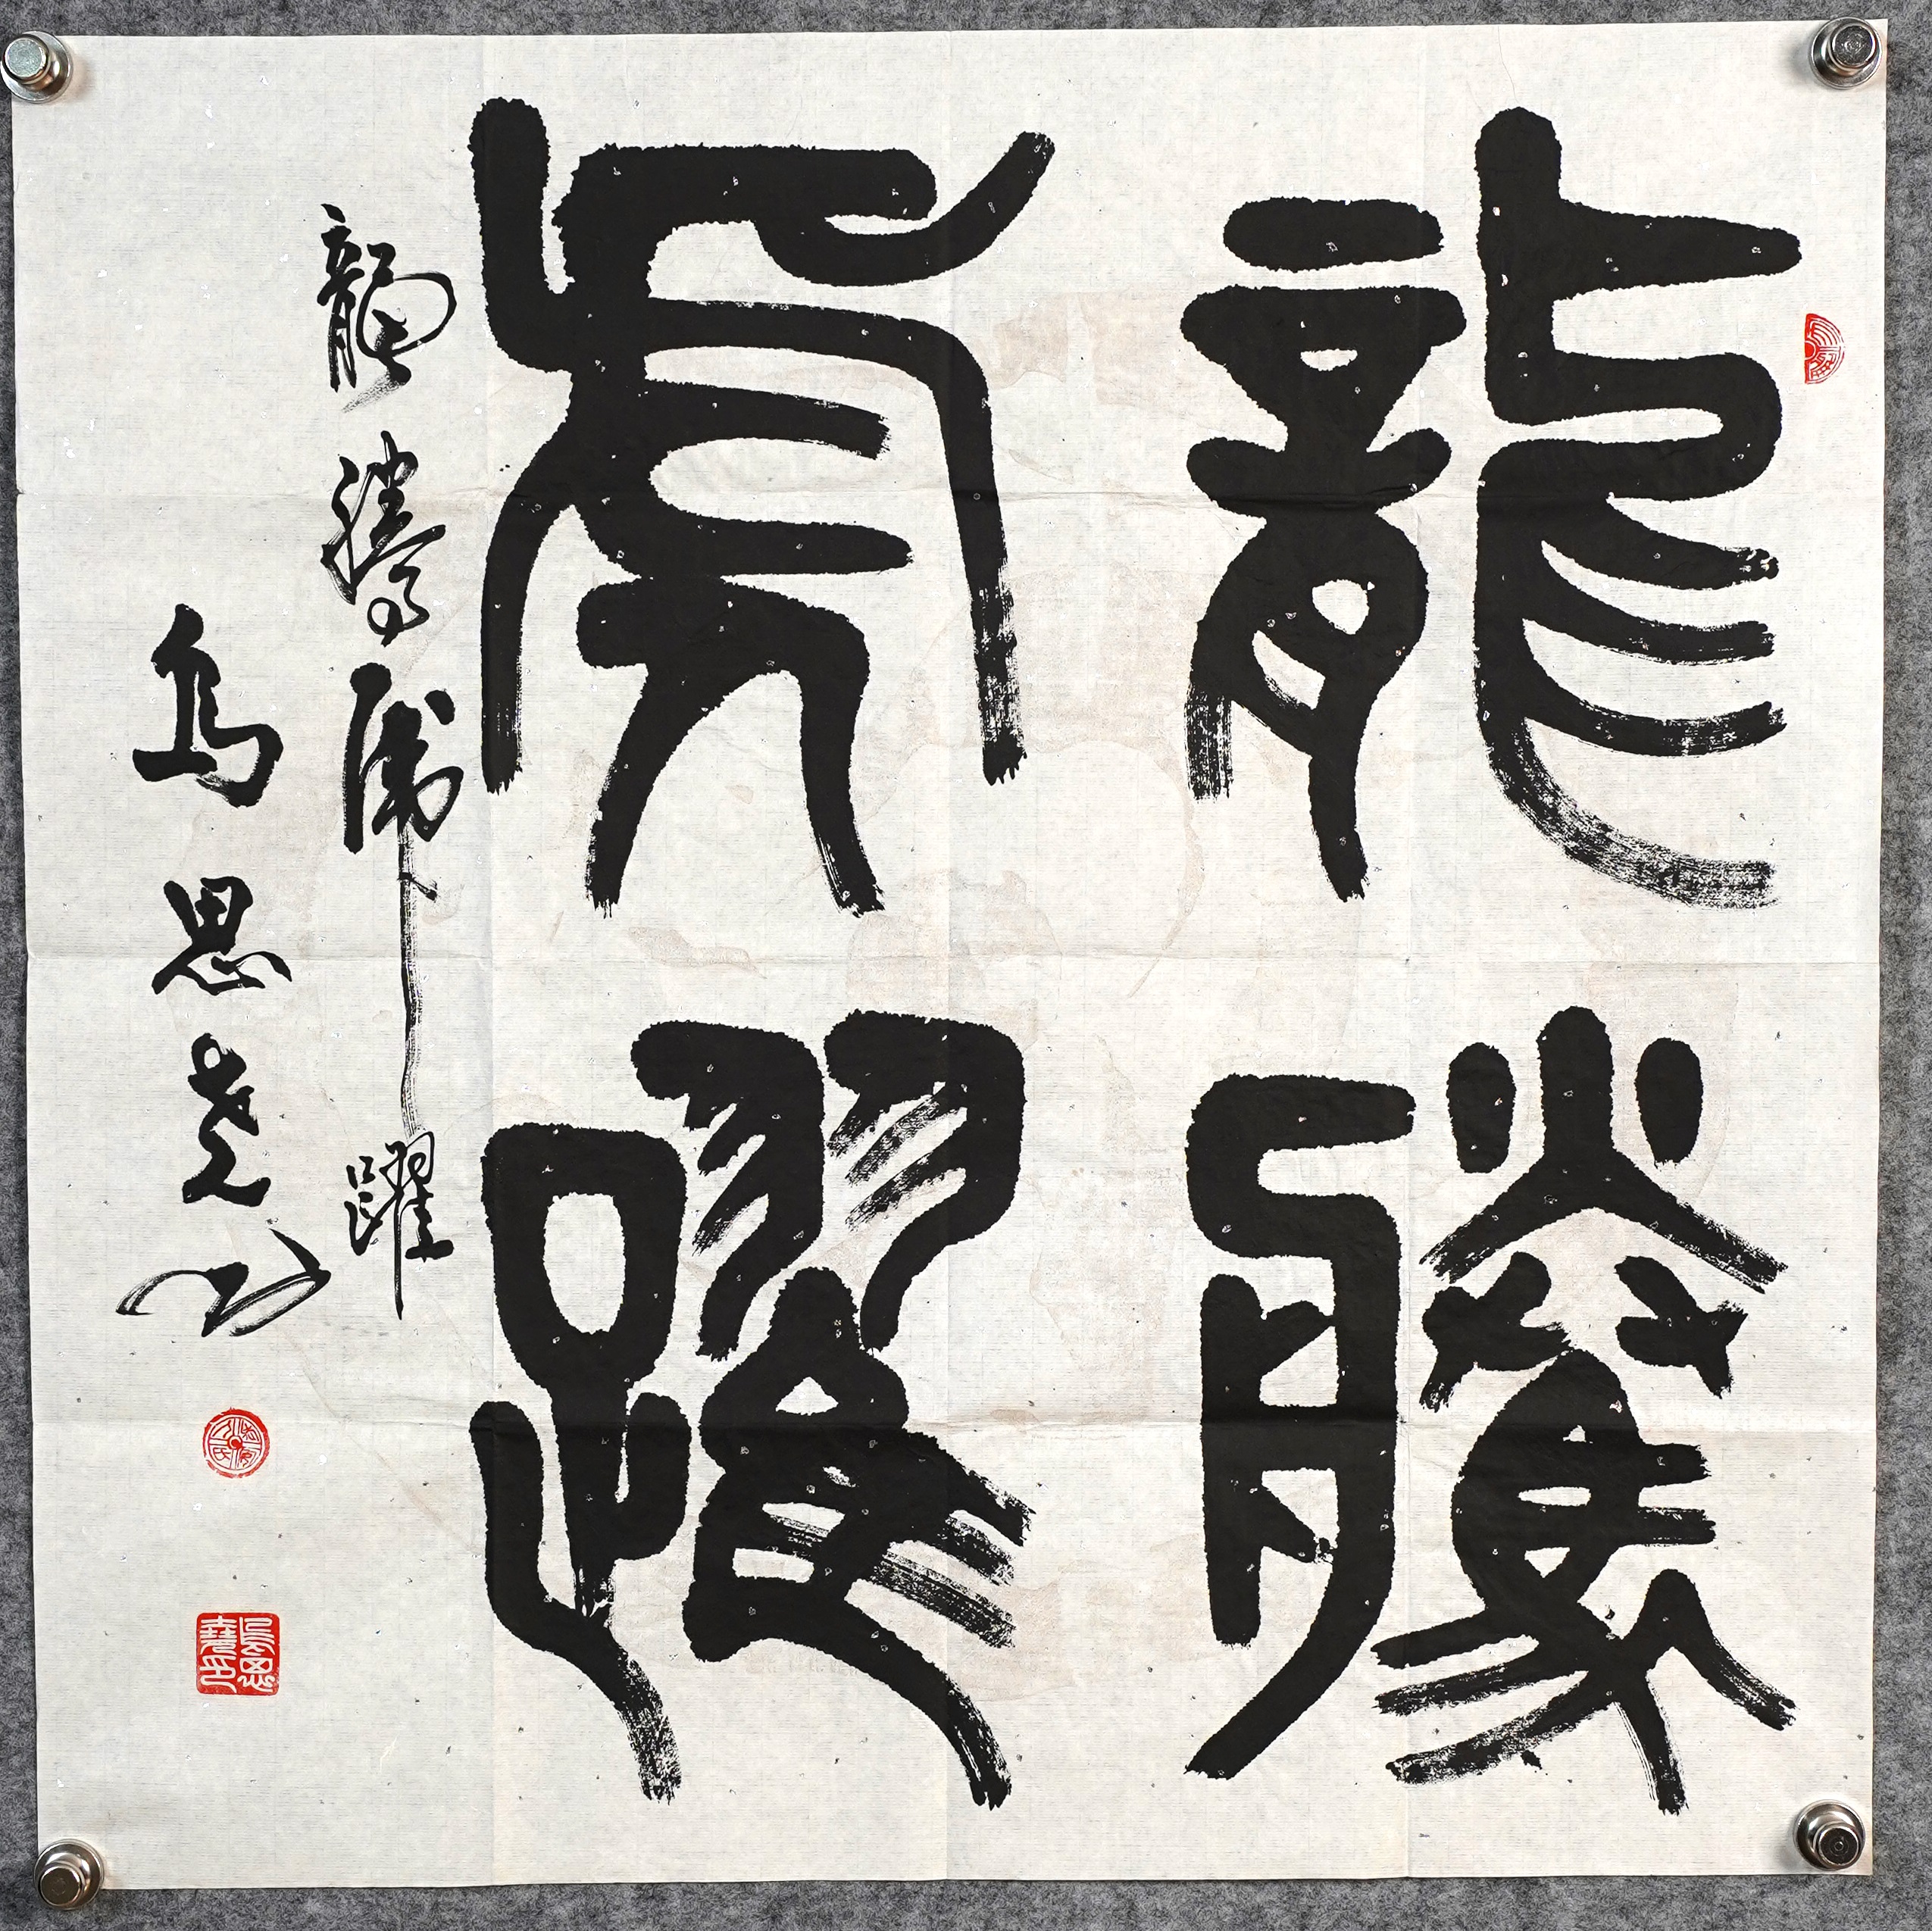 龍騰
虎躍
龍騰虎躍
烏思堯